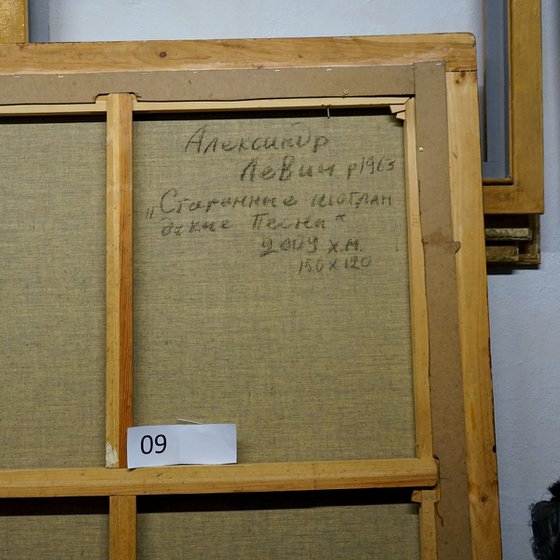 Александр
Левин р1965
„Старинные шотлан
дские Песни“
2009 х.м.
150 х 120
09